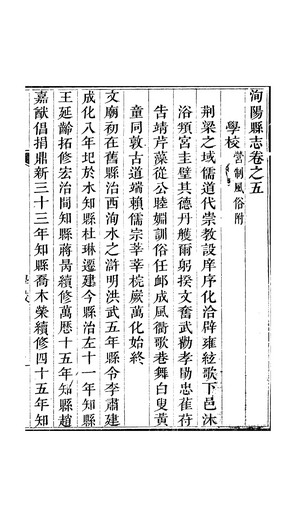 洵陽縣志卷之五
學校 營制風俗附
荆梁之域儒道代崇教設庠序化洽辟雍絃歌下邑沐
浴頖宮圭璧其德丹雘爾躬揆文奮武勸孝勗忠萑苻
告靖芹藻從公睦婣訓俗任䘏成風衢歌巷舞白叟黃
童同敦古道端賴儒宗莘莘棫樸萬化始終
文廟初在舊縣治西洵水之滸明洪武五年縣令李肅建
成化八年圯於水知縣杜琳遷建今縣治左十一年知縣
王延齡拓修宏治間知縣蔣昺續修萬歷十五年知縣趙
嘉猷倡捐鼎新三十三年知縣喬木榮續修四十五年知